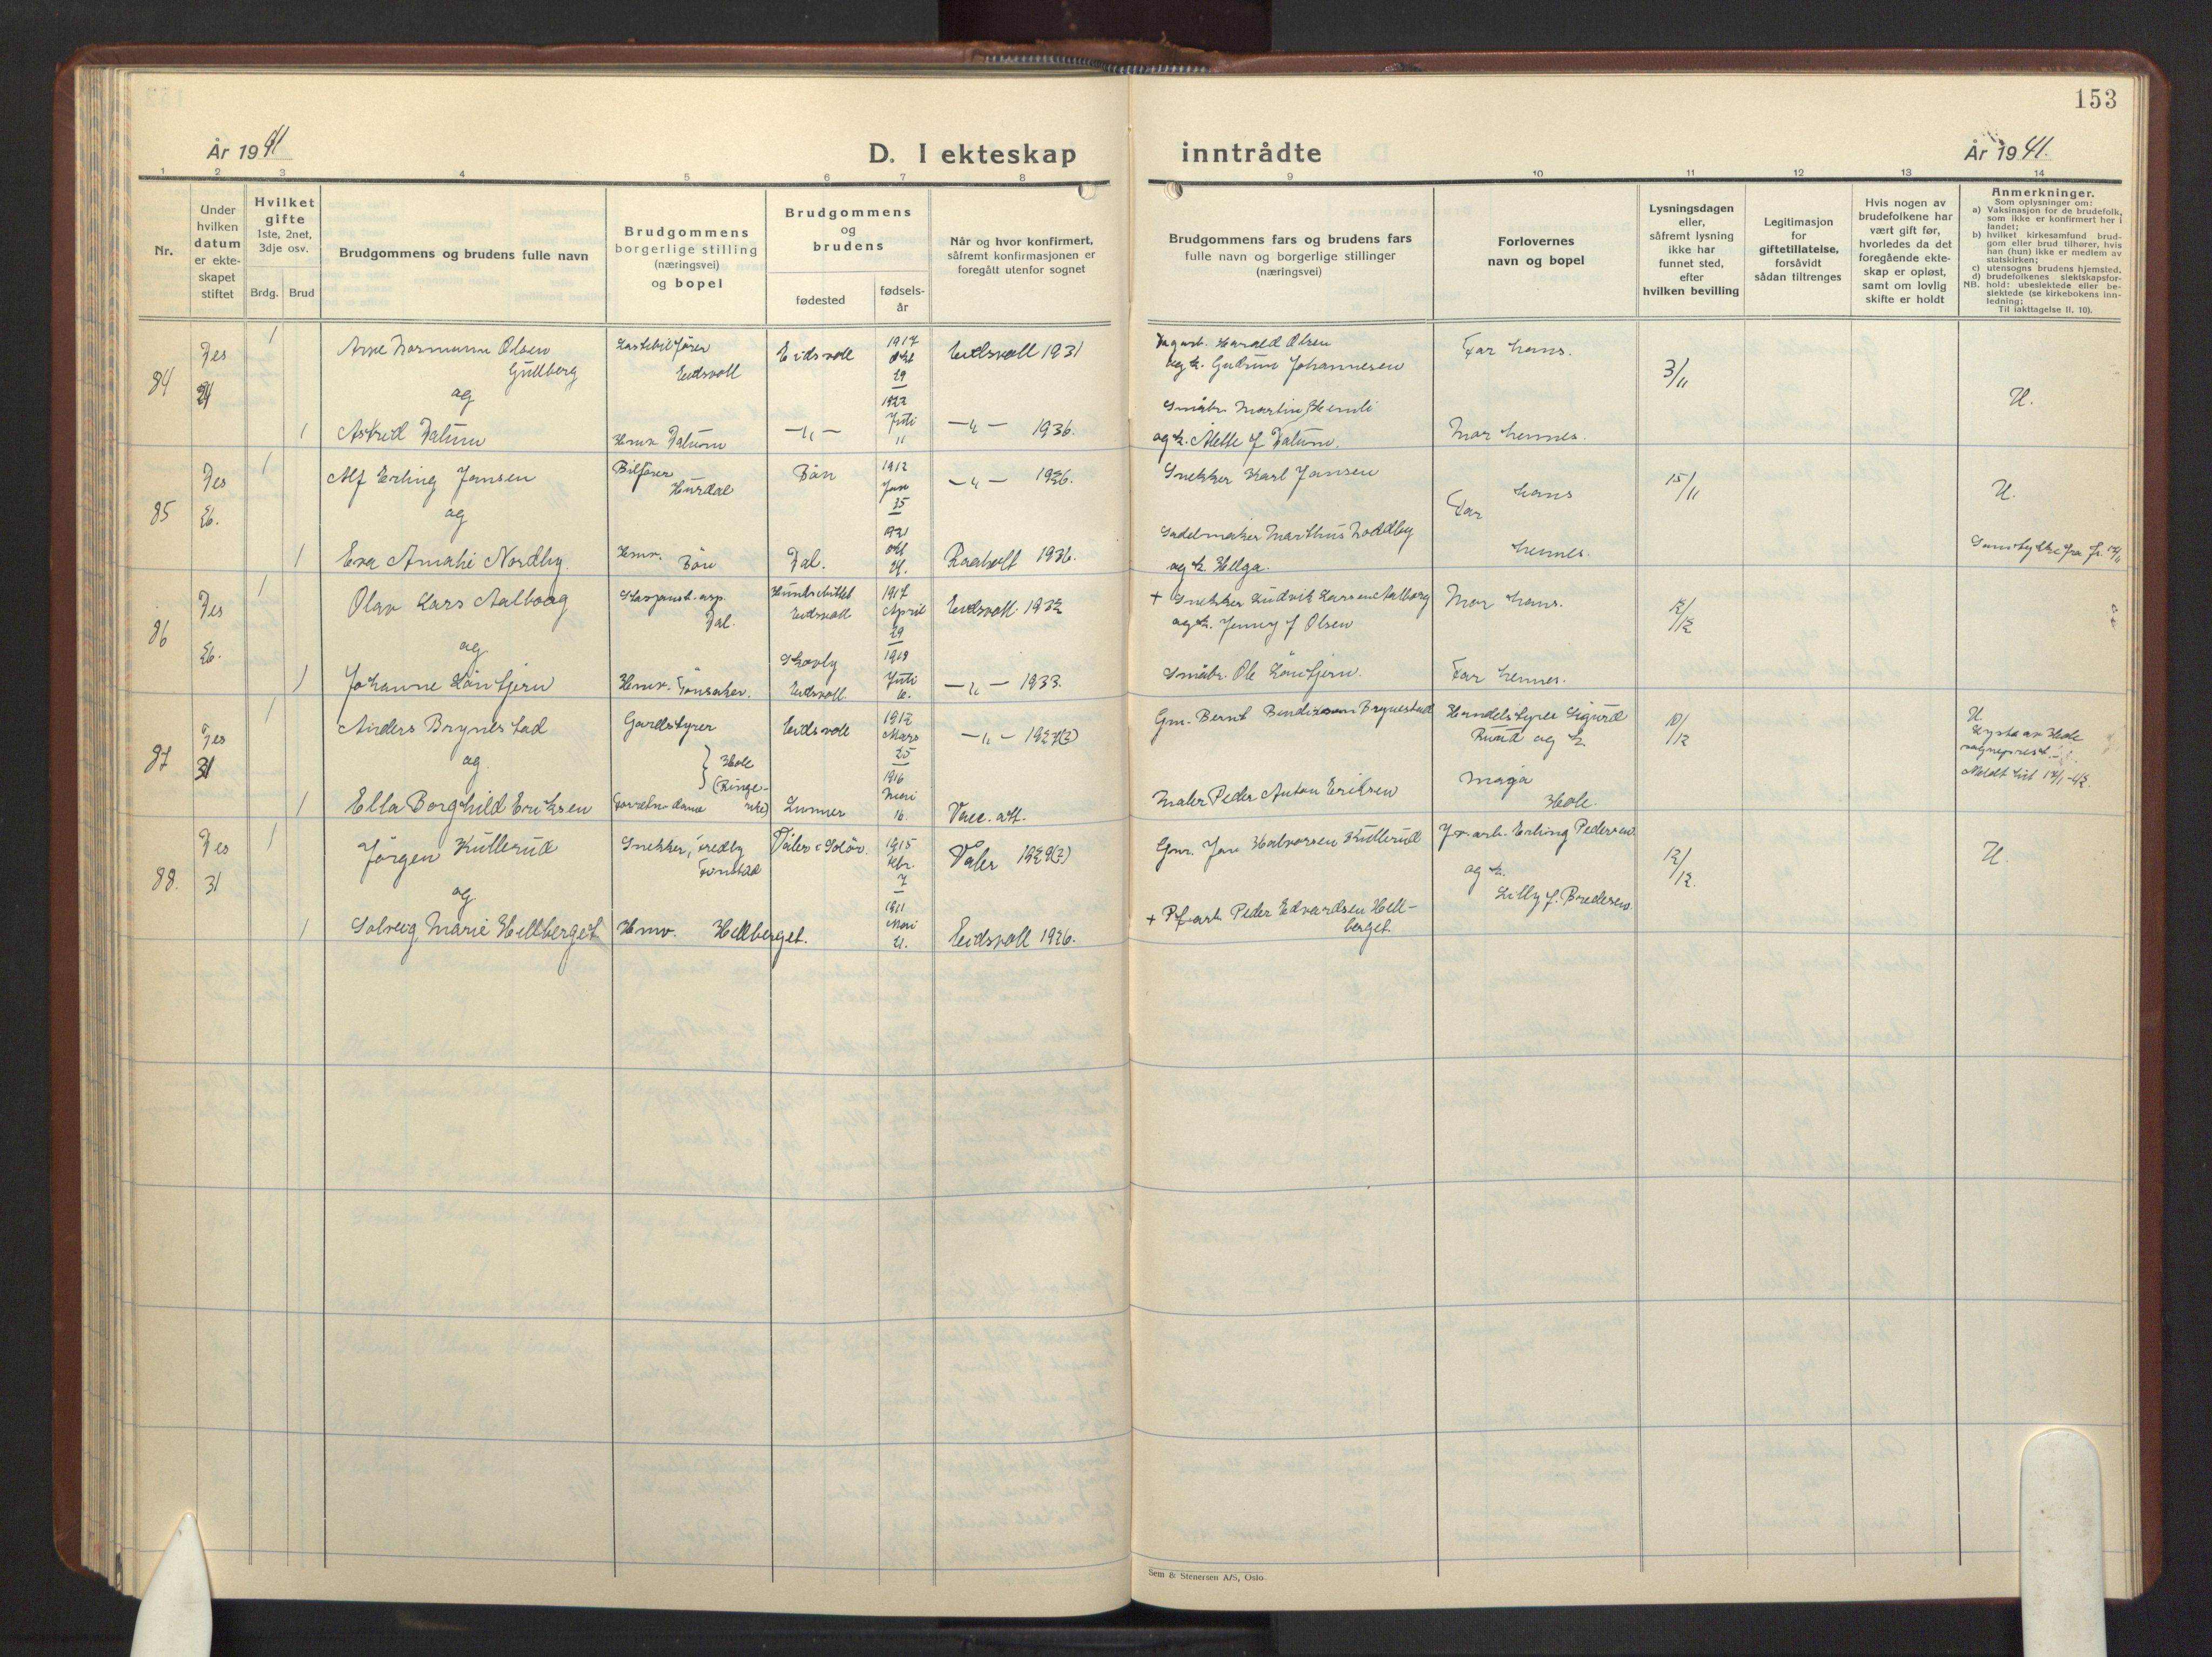 153
År 1941
D. I ekteskap
inntrådte
År 1941.
1 2 3 4 5 6 7 8 9 10 11 12 13 14
Nr.
Under
hvilken
datum
er ekte-
skapet
stiftet
Hvilket
gifte
1ste, 2net,
3dje osv.
Brdg.
Brud
Brudgommens og brudens fulle navn
Brudgommens
borgerlige stilling
(næringsvei)
og bopel
Brudgommens
og
brudens
fødested
fødsels-
år
Når og hvor konfirmert,
såfremt konfirmasjonen er
foregått utenfor sognet
Brudgommens fars og brudens fars
fulle navn og borgerlige stillinger
(næringsvei)
Forlovernes
navn og bopel
Lysningsdagen
eller,
såfremt lysning
ikke har
funnet sted,
efter
hvilken bevilling
Legitimasjon
for
giftetillatelse,
forsåvidt
sådan tiltrenges
Hvis nogen av
brudefolkene har
vært gift før,
hvorledes da det
foregående ekte-
skap er opløst,
samt om lovlig
skifte er holdt
Anmerkninger.
Som oplysninger om:
a) Vaksinasjon for de brudefolk,
som ikke er konfirmert her i
landet;
b) hvilket kirkesamfund brud-
gom eller brud tilhører, hvis
han (hun) ikke er medlem av
statskirken;
c) utensogns brudens hjemsted.
d) brudefolkenes slektskapsfor-
NB. hold: ubeslektede eller be-
slektede (se kirkebokens inn-
ledning;
Til iakttagelse II, 10).
84
Des
1
Arne Normann Olsen
Gullberg
og
Lastebilfører
Eidsvoll
Eidsvoll
1917
Okt
29
Eidsvoll 1931
Harald Olsen
og h. Gudrun Johannesen
Far hans.
3/11
U.
1
Astrid Dalum
Hmv. Dalum
-"-
1922
Juli
11
-"- 1936.
Småbr. Martin
og h. Alette f Dalum.
Mor hennes.
85
Des
26.
1
Alf Erling Jansen
og
Bilfører
Hurdal
Bøn
1912
Jan
25
-"- 1926.
Snekker Karl Jansen
Far hans
15/11
U.
1
Eva Amalie Nordby.
Hmv.
Bøn
Dal.
1921
Okt
Raaholt 1936.
Sadelmaker Marthus Noddby
og h. Helga.
hennes.
Samtykke fra
86
Des
26.
1
Olav Lars Aalborg
og
Dal.
Eidsvoll
1917
April
29
Eidsvoll 1932
+ Snekker Ludvik Larsen Aalborg
og h. Jenny f Olsen
Mor hans.
12/12
1
Johanne Løntjern
Hmv.
Skovly
Eidsvoll
1919
Juli
6.
-"- 1933.
Småbr. Ole Løntjern.
Far hennes.
87
Des
31
1
Anders Brynestad
og
Gardstyrer
Hole
(Ringe-
rike)
Eidsvoll
1912
Mars
25
-"- 1927(?)
Gm. Bernt Bendiksen Brynestad
Handelstyrer Sigurd
Ruud og h
Maja
Hole.
10/12
U.
Lyst av Hole
sogneprest
1
Ella Borghild Eriksen
Lunner
1916
Mai
16.
Vacc. att.
Maler Peder Anton Eriksen
88.
Des
31
1
Jørgen Kullerud
og
Snekker, Fredly
Våler i Solør.
1915
Febr.
7
Våler 1929(?)
Gm. Jon Halvorsen Kullerud
Erling Pedersen
og h.
Lilly f. Bredesen.
12/12.
U.
1
Solveig Marie Hellberget
Hmv. Hellberget.
1911
Mai
21.
Eidsvoll 1926.
+ Peder Edvardsen Hell-
berget
Sem & Stenersen A/S, Oslo